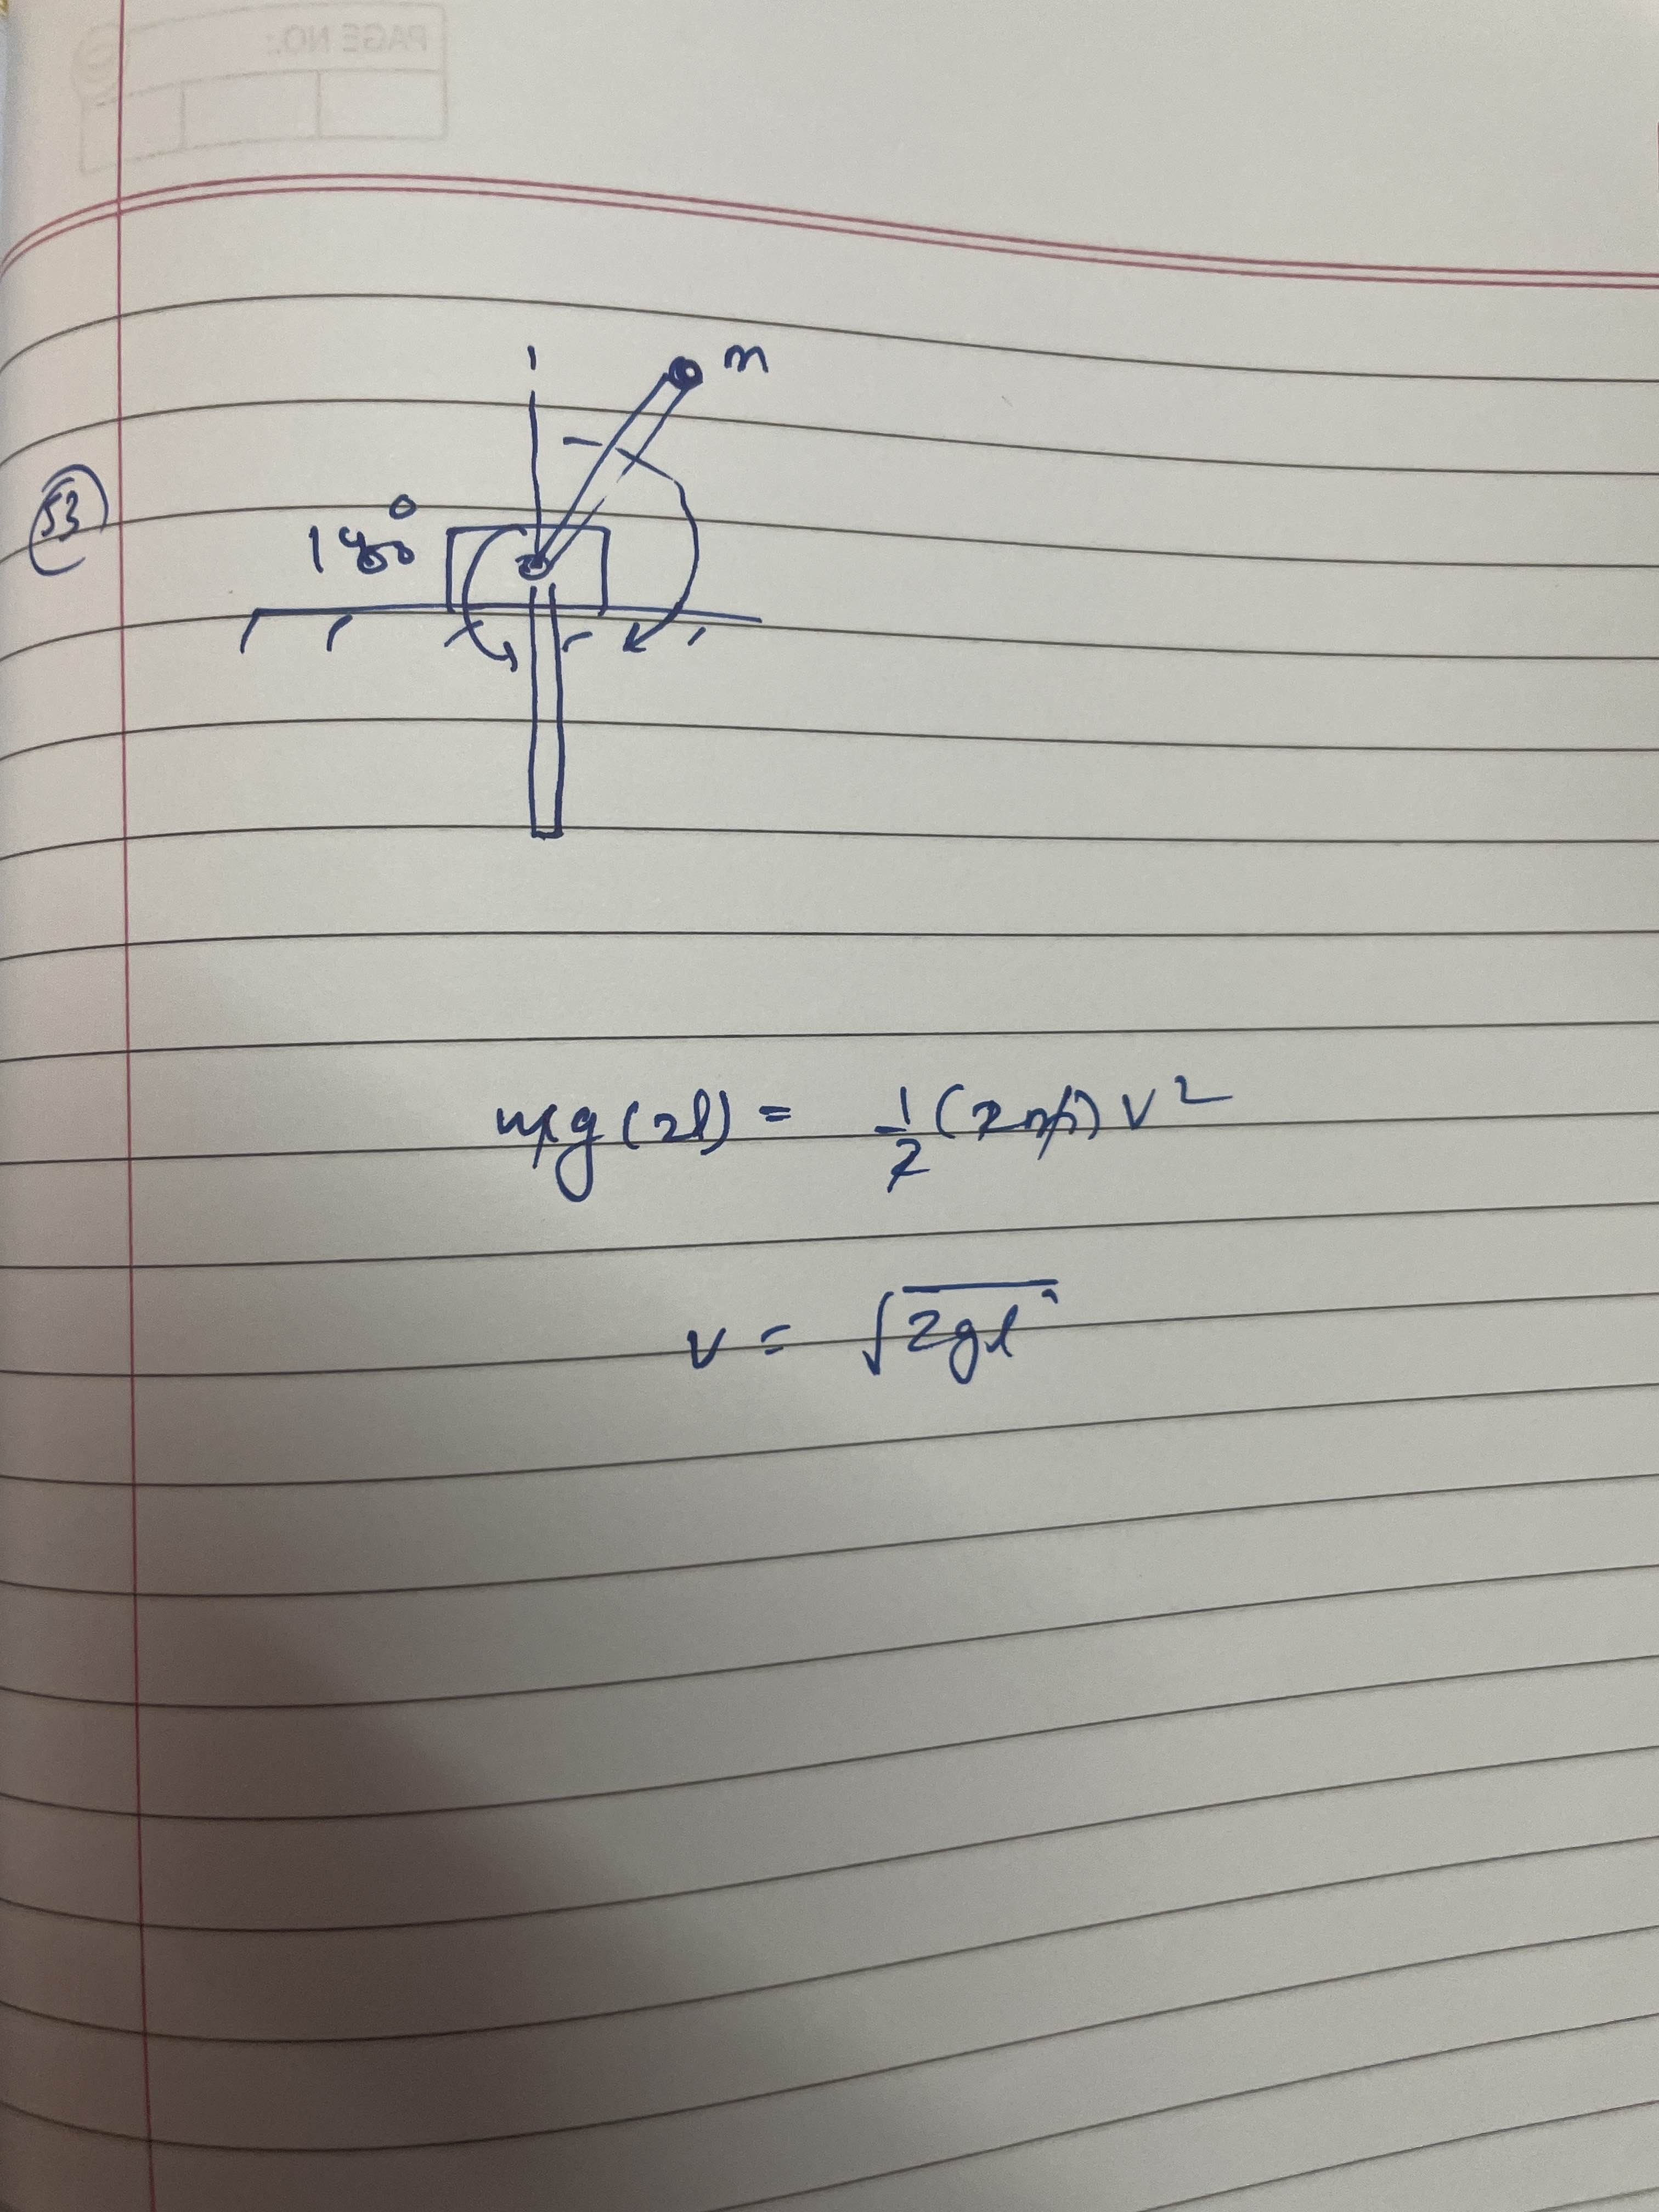 PAGE NO.:
m
53
180°
mg(2l) = 1/2 (2m) v²
v = √2gl